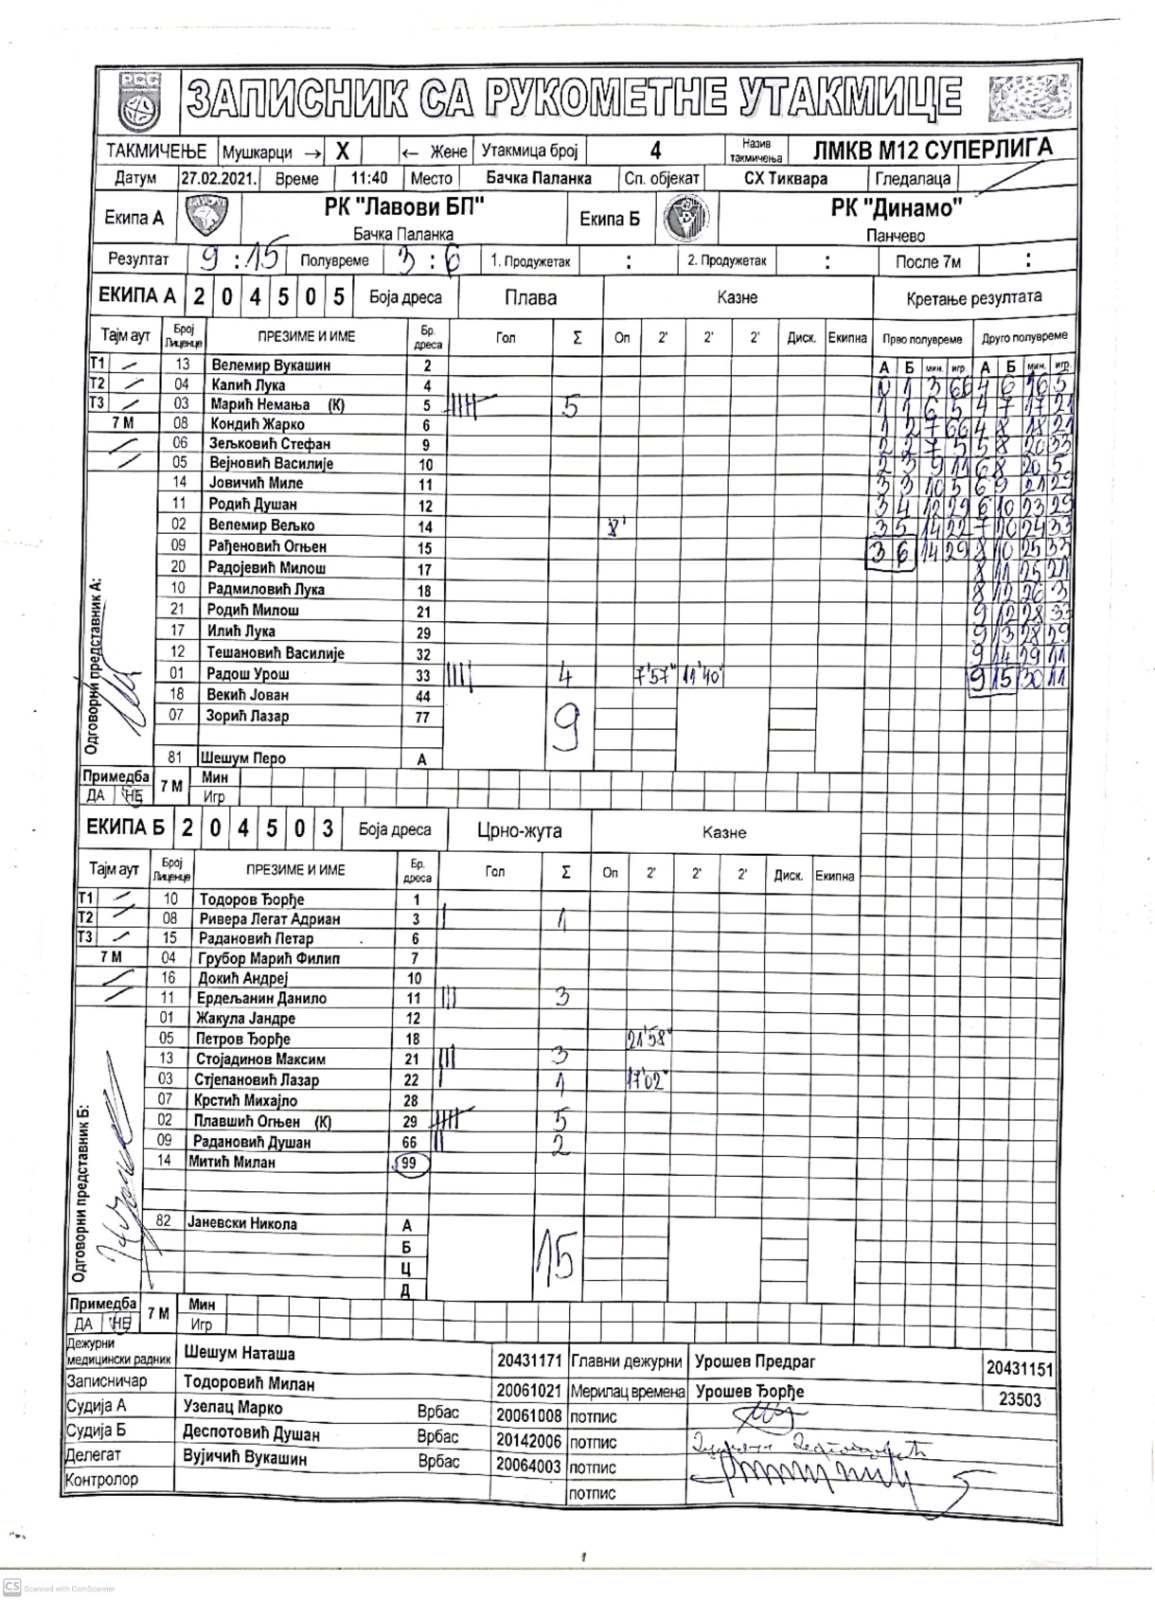 РСС
ЗАПИСНИК СА РУКОМЕТНЕ УТАКМИЦЕ
ТАКМИЧЕЊЕ Мушкарци → X ← Жене Утакмица број 4 Назив такмичења ЛМКВ М12 СУПЕРЛИГА
Датум 27.02.2021. Време 11:40 Место Бачка Паланка Сп. објекат СХ Тиквара Гледалаца
Екипа А РК "Лавови БП" Бачка Паланка Екипа Б РК "Динамо" Панчево
Резултат 9 : 15 Полувреме 3 : 6 1. Продужетак : 2. Продужетак : После 7м :
ЕКИПА А 2 0 4 5 0 5 Боја дреса Плава Казне Кретање резултата
Тајм аут Број Лиценце ПРЕЗИМЕ И ИМЕ Бр. дреса Гол Σ Оп 2' 2' 2' Диск. Екипна Прво полувреме Друго полувреме
А Б мин. игр. А Б мин. игр.
Т1 13 Велемир Вукашин 2 0 1 3 66 4 6 16 5
Т2 04 Калић Лука 4 1 1 6 5 4 7 17 21
Т3 03 Марић Немања (К) 5 5 1 2 7 66 4 8 18 21
7 М 08 Кондић Жарко 6 2 2 7 5 5 8 20 33
06 Зељковић Стефан 9 2 3 9 11 6 8 20 5
05 Вејновић Василије 10 3 3 10 5 6 9 21 29
14 Јовичић Миле 11 3 4 12 29 6 10 23 29
11 Родић Душан 12 3 5 14 22 7 10 24 33
02 Велемир Вељко 14 8' 3 6 14 29 8 10 25 33
09 Рађеновић Огњен 15 8 11 25 21
20 Радојевић Милош 17 8 12 26 3
10 Радмиловић Лука 18 9 12 28 33
21 Родић Милош 21 9 13 28 29
17 Илић Лука 29 9 14 29 11
12 Тешановић Василије 32 9 15 30 11
01 Радош Урош 33 4 7'57" 11'40"
18 Векић Јован 44
07 Зорић Лазар 77 9
81 Шешум Перо А
Одговорни представник А:
Примедба ДА НЕ 7 М Мин
Игр
ЕКИПА Б 2 0 4 5 0 3 Боја дреса Црно-жута Казне
Тајм аут Број Лиценце ПРЕЗИМЕ И ИМЕ Бр. дреса Гол Σ Оп 2' 2' 2' Диск. Екипна
Т1 10 Тодоров Ђорђе 1
Т2 08 Ривера Легат Адриан 3 1
Т3 15 Радановић Петар 6
7 М 04 Грубор Марић Филип 7
16 Докић Андреј 10
11 Ердељанин Данило 11 3
01 Жакула Јандре 12
05 Петров Ђорђе 18 21'58"
13 Стојадинов Максим 21 3
03 Стјепановић Лазар 22 1 17'02"
07 Крстић Михајло 28
02 Плавшић Огњен (К) 29 5
09 Радановић Душан 66 2
14 Митић Милан 99
82 Јаневски Никола А 15
Б
Ц
Д
Одговорни представник Б:
Примедба ДА НЕ 7 М Мин
Игр
Дежурни медицински радник Шешум Наташа 20431171 Главни дежурни Урошев Предраг 20431151
Записничар Тодоровић Милан 20061021 Мерилац времена Урошев Ђорђе 23503
Судија А Узелац Марко Врбас 20061008 потпис
Судија Б Деспотовић Душан Врбас 20142006 потпис
Делегат Вујичић Вукашин Врбас 20064003 потпис
Контролор потпис
CS Scanned with CamScanner